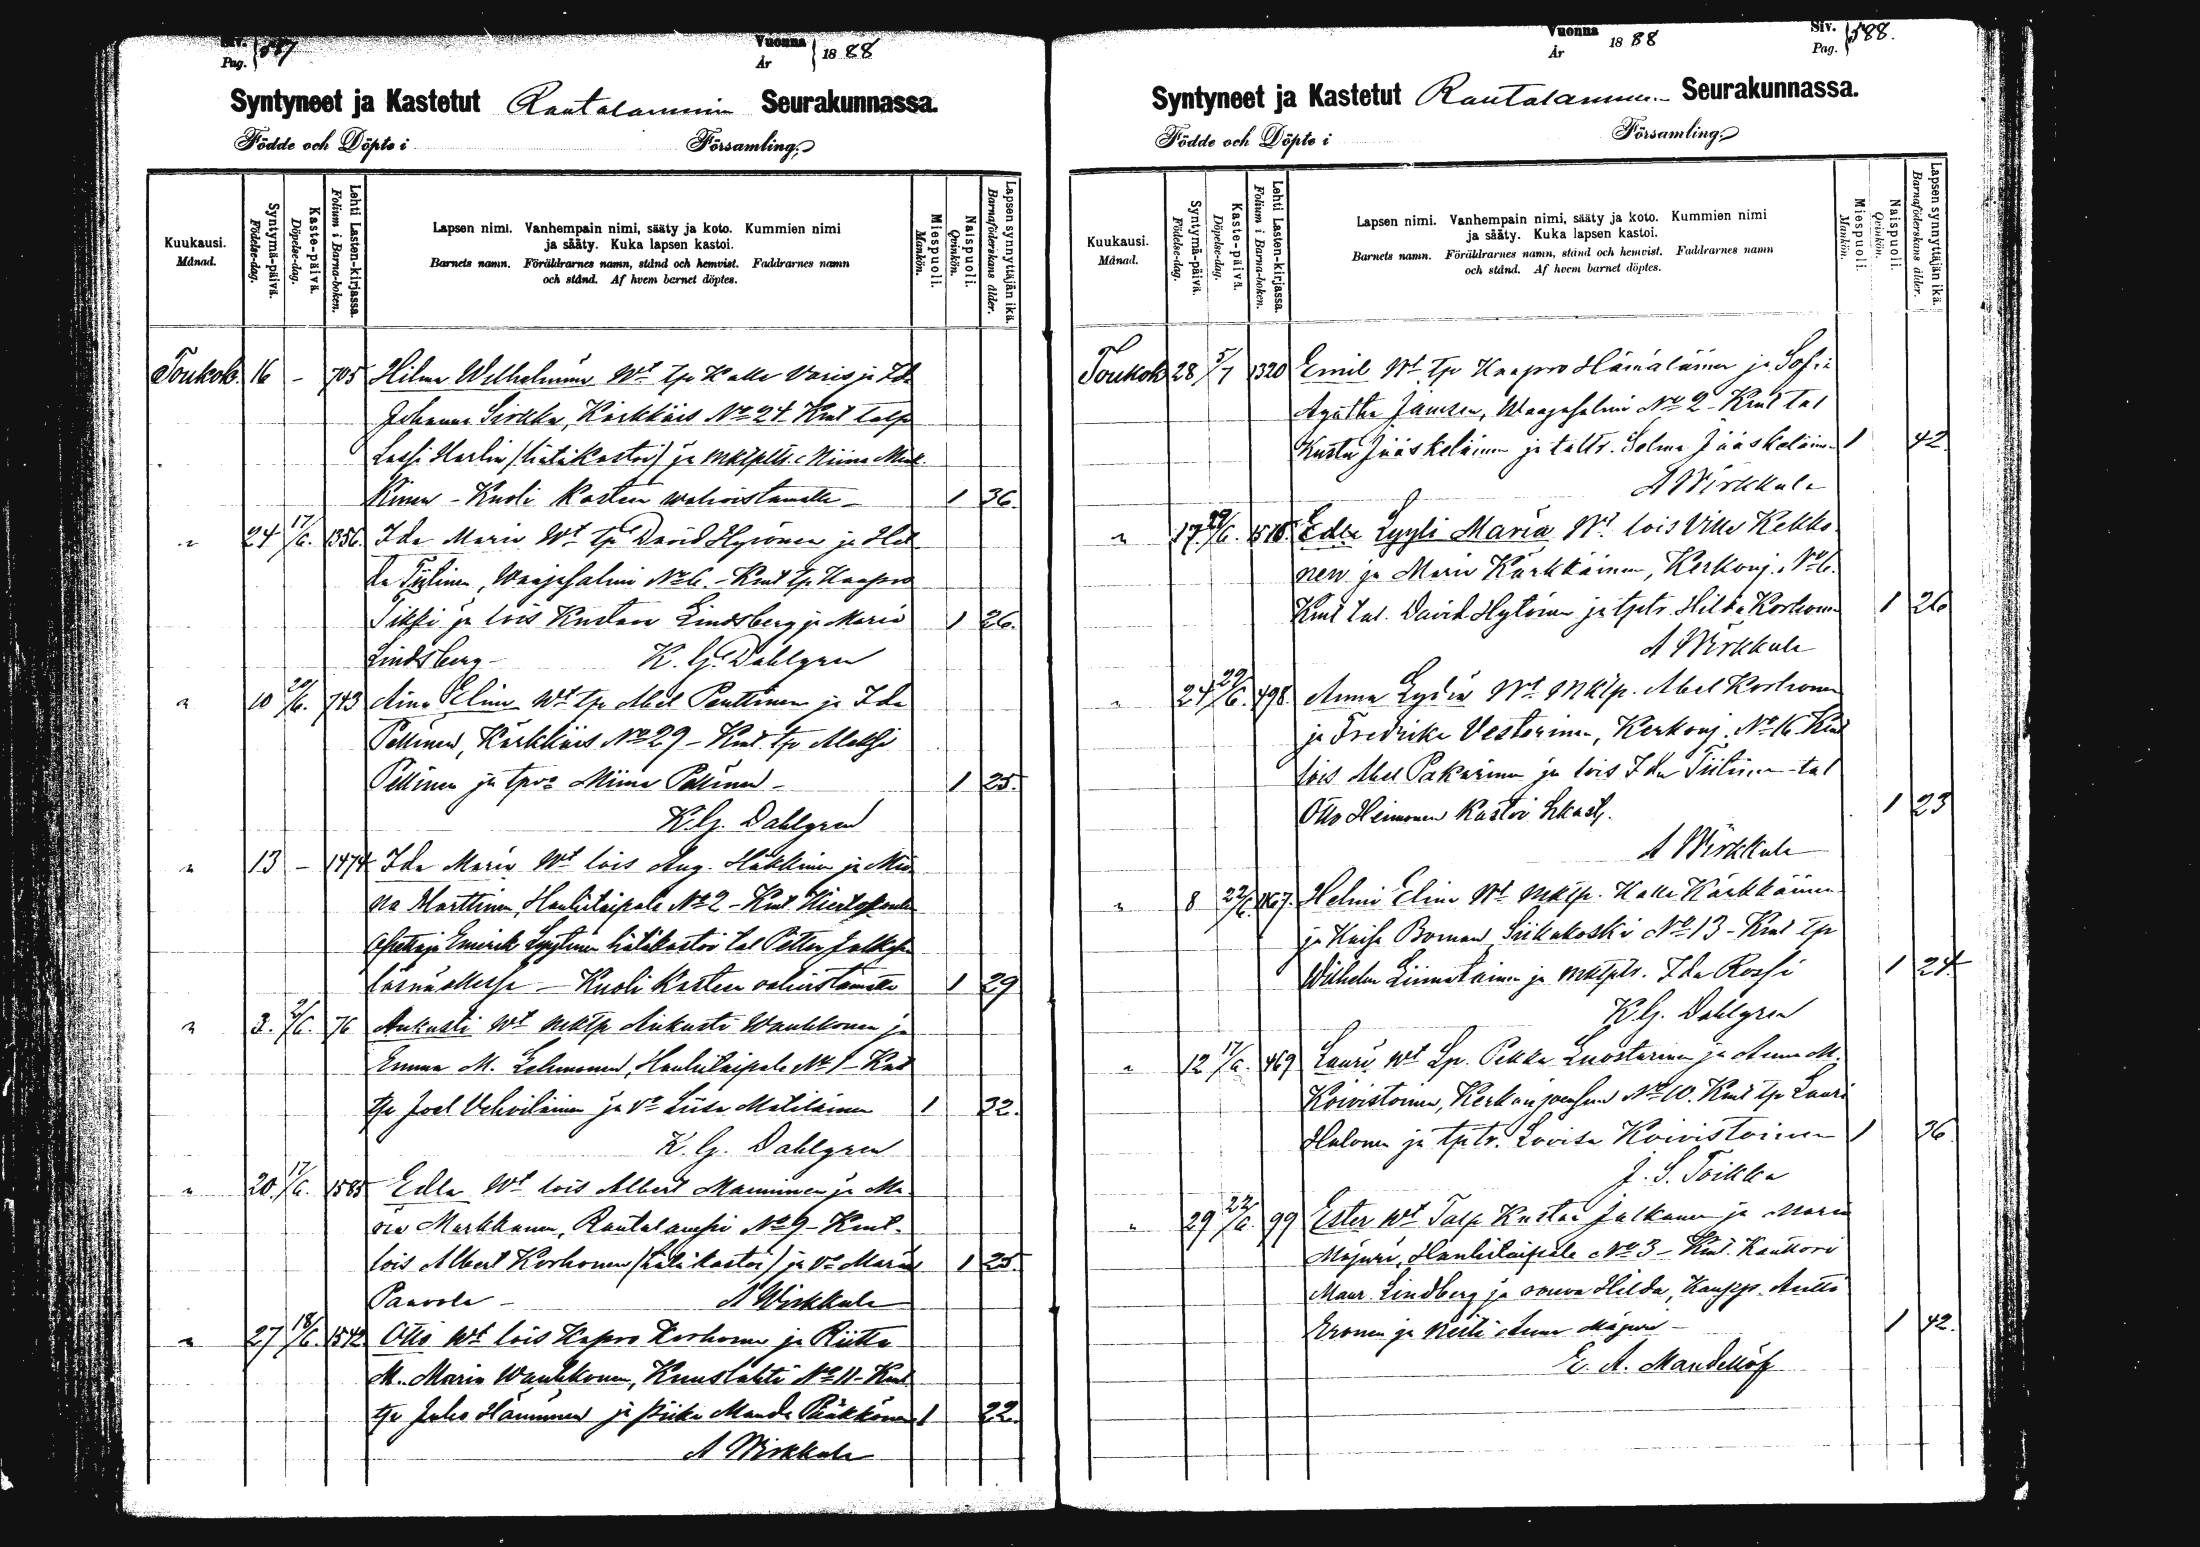 Siv. Pag. 587
Vuonna År 1888
Syntyneet ja Kastetut Rautalammin Seurakunnassa.
Födde och Döpte i Församling.
Kuukausi. Månad.
Syntymä-päivä. Födelse-dag.
Kaste-päivä. Döpelse-dag.
Lehti Lasten-kirjassa. Folium i Barna-boken.
Lapsen nimi. Vanhempain nimi, sääty ja koto. Kummien nimi
ja sääty. Kuka lapsen kastoi.
Barnets namn. Föräldrarnes namn, stånd och hemvist. Faddrarnes namn
och stånd. Af hvem barnet döptes.
Miespuoli. Mankön.
Naispuoli. Qvinkön.
Lapsen synnyttäjän ikä. Barnaföderskans ålder.
Toukok. 16 - 705 Hilma Wilhelmiina Wt tp Kalle Varis ja Ida
Johanna Sirkka, Kärkkäis No 24. Kmt talp
Lassi Harlin (hätäkastoi) ja mktptls. Miina Mink
kinen - Kuoli kasteen wahvistamatta - 1 36.
" 24 17/6. 1356. Ida Maria Wt tp David Hyvönen ja Hil
da Tiilinen, Waajasalmi No 6. - Kmt tp Kaapro
Tikki ja lois Kustaa Lindsberg ja Maria 1 26.
Lindsberg - K. G. Dahlgren
" 10 20/6. 743 Aina Elina Wt tp Abel Penttinen ja Ida
Pellinen, Kärkkäis No 29 - Kmt tp Matti
Pellinen ja tpvo Miina Pellinen - 1 25.
K. G. Dahlgren
" 13 - 1474 Ida Maria Wt lois Aug. Häkkinen ja Mii
na Marttinen, Hankitaipale No 2 - Kmt Kiertokoulun
opettaja Emerik Lyytinen hätäkastoi tal Petter Jalkasen
läsnäollessa - Kuoli kasteen vahvistamatta 1 29
" 3. 2/6. 76 Aukusti Wt mktp Aukusti Wankkonen ja
Emma M. Lehmonen, Hankitaipale No 1 - Kmt
tp Joel Vehviläinen ja vo Liisa Matilainen 1 32.
K. G. Dahlgren
" 20. 17/6. 1585 Edla Wt lois Albert Manninen ja Ma
ria Markkanen, Rautalampi No 9 - Kmt.
lois Albert Korhonen (hätäkastoi) ja vo Maria 1 25.
Paavola - A Wirkkula
" 27 18/6. 1542 Otto Wt lois Kapro Korhonen ja Riitta
M. Maria Wankkonen, Kuuslahti No 11 - Kmt
tp Juho Hänninen ja piika Manda Pääkkönen 1 22.
A Wirkkula
Vuonna År 1888
Siv. Pag. 588.
Syntyneet ja Kastetut Rautalammin Seurakunnassa.
Födde och Döpte i Församling.
Kuukausi. Månad.
Syntymä-päivä. Födelse-dag.
Kaste-päivä. Döpelse-dag.
Lehti Lasten-kirjassa. Folium i Barna-boken.
Lapsen nimi. Vanhempain nimi, sääty ja koto. Kummien nimi
ja sääty. Kuka lapsen kastoi.
Barnets namn. Föräldrarnes namn, stånd och hemvist. Faddrarnes namn
och stånd. Af hvem barnet döptes.
Miespuoli. Mankön.
Naispuoli. Qvinkön.
Lapsen synnyttäjän ikä. Barnaföderskans ålder.
Toukok 28 5/7 1320 Emil Wt tp Kaapro Hämäläinen ja Sofia
Agatha Jämsen, Waajasalmi No 2 - Kmt tal
Kusta Jääskeläinen ja taltr. Selma Jääskeläinen 1 42.
A Wirkkula
" 17. 29/6. 1515. Edla Lyyli Maria Wt lois Ville Kekko
nen ja Maria Kärkkäinen, Kerkonj. No 6.
Kmt tal. David Hytönen ja tptr. Hilda Korhonen 1 26
A Wirkkula
" 24 29/6. 498. Anna Lydia Wt mktp. Abel Korhonen
ja Fredrika Vesterinen, Kerkonj. No 16 Kmt
lois Abel Pakarinen ja lois Ida Tiilinen - tal
Otto Heimonen kastoi hkast. 1 23
A Wirkkula
" 8 22/6. 1167. Helmi Elina Wt mktp. Kalle Kärkkäinen
ja Kaisa Boman Siikakoski No 13 - Kmt tp
Wilhelm Liimatainen ja mktptr. Ida Rossi 1 24.
K. G. Dahlgren
" 12 17/6. 469 Lauri Wt Lp. Pekka Luostarinen ja Anna M.
Koivistoinen, Kerkonjoensuu No 10. Kmt tp Lauri
Halonen ja tptr. Lovisa Koivistoinen 1 36.
J. S. Toikka
" 29. 22/6. 99 Ester Wt Talp Kustaa Jalkanen ja Maria
Majuri, Hankitaipale No 3 - Kmt. Kanttori
Maur. Lindberg ja rouva Hilda, Kaupp. Antti
Eronen ja neiti Anna Majuri - 1 42.
E. A. Mandellöf